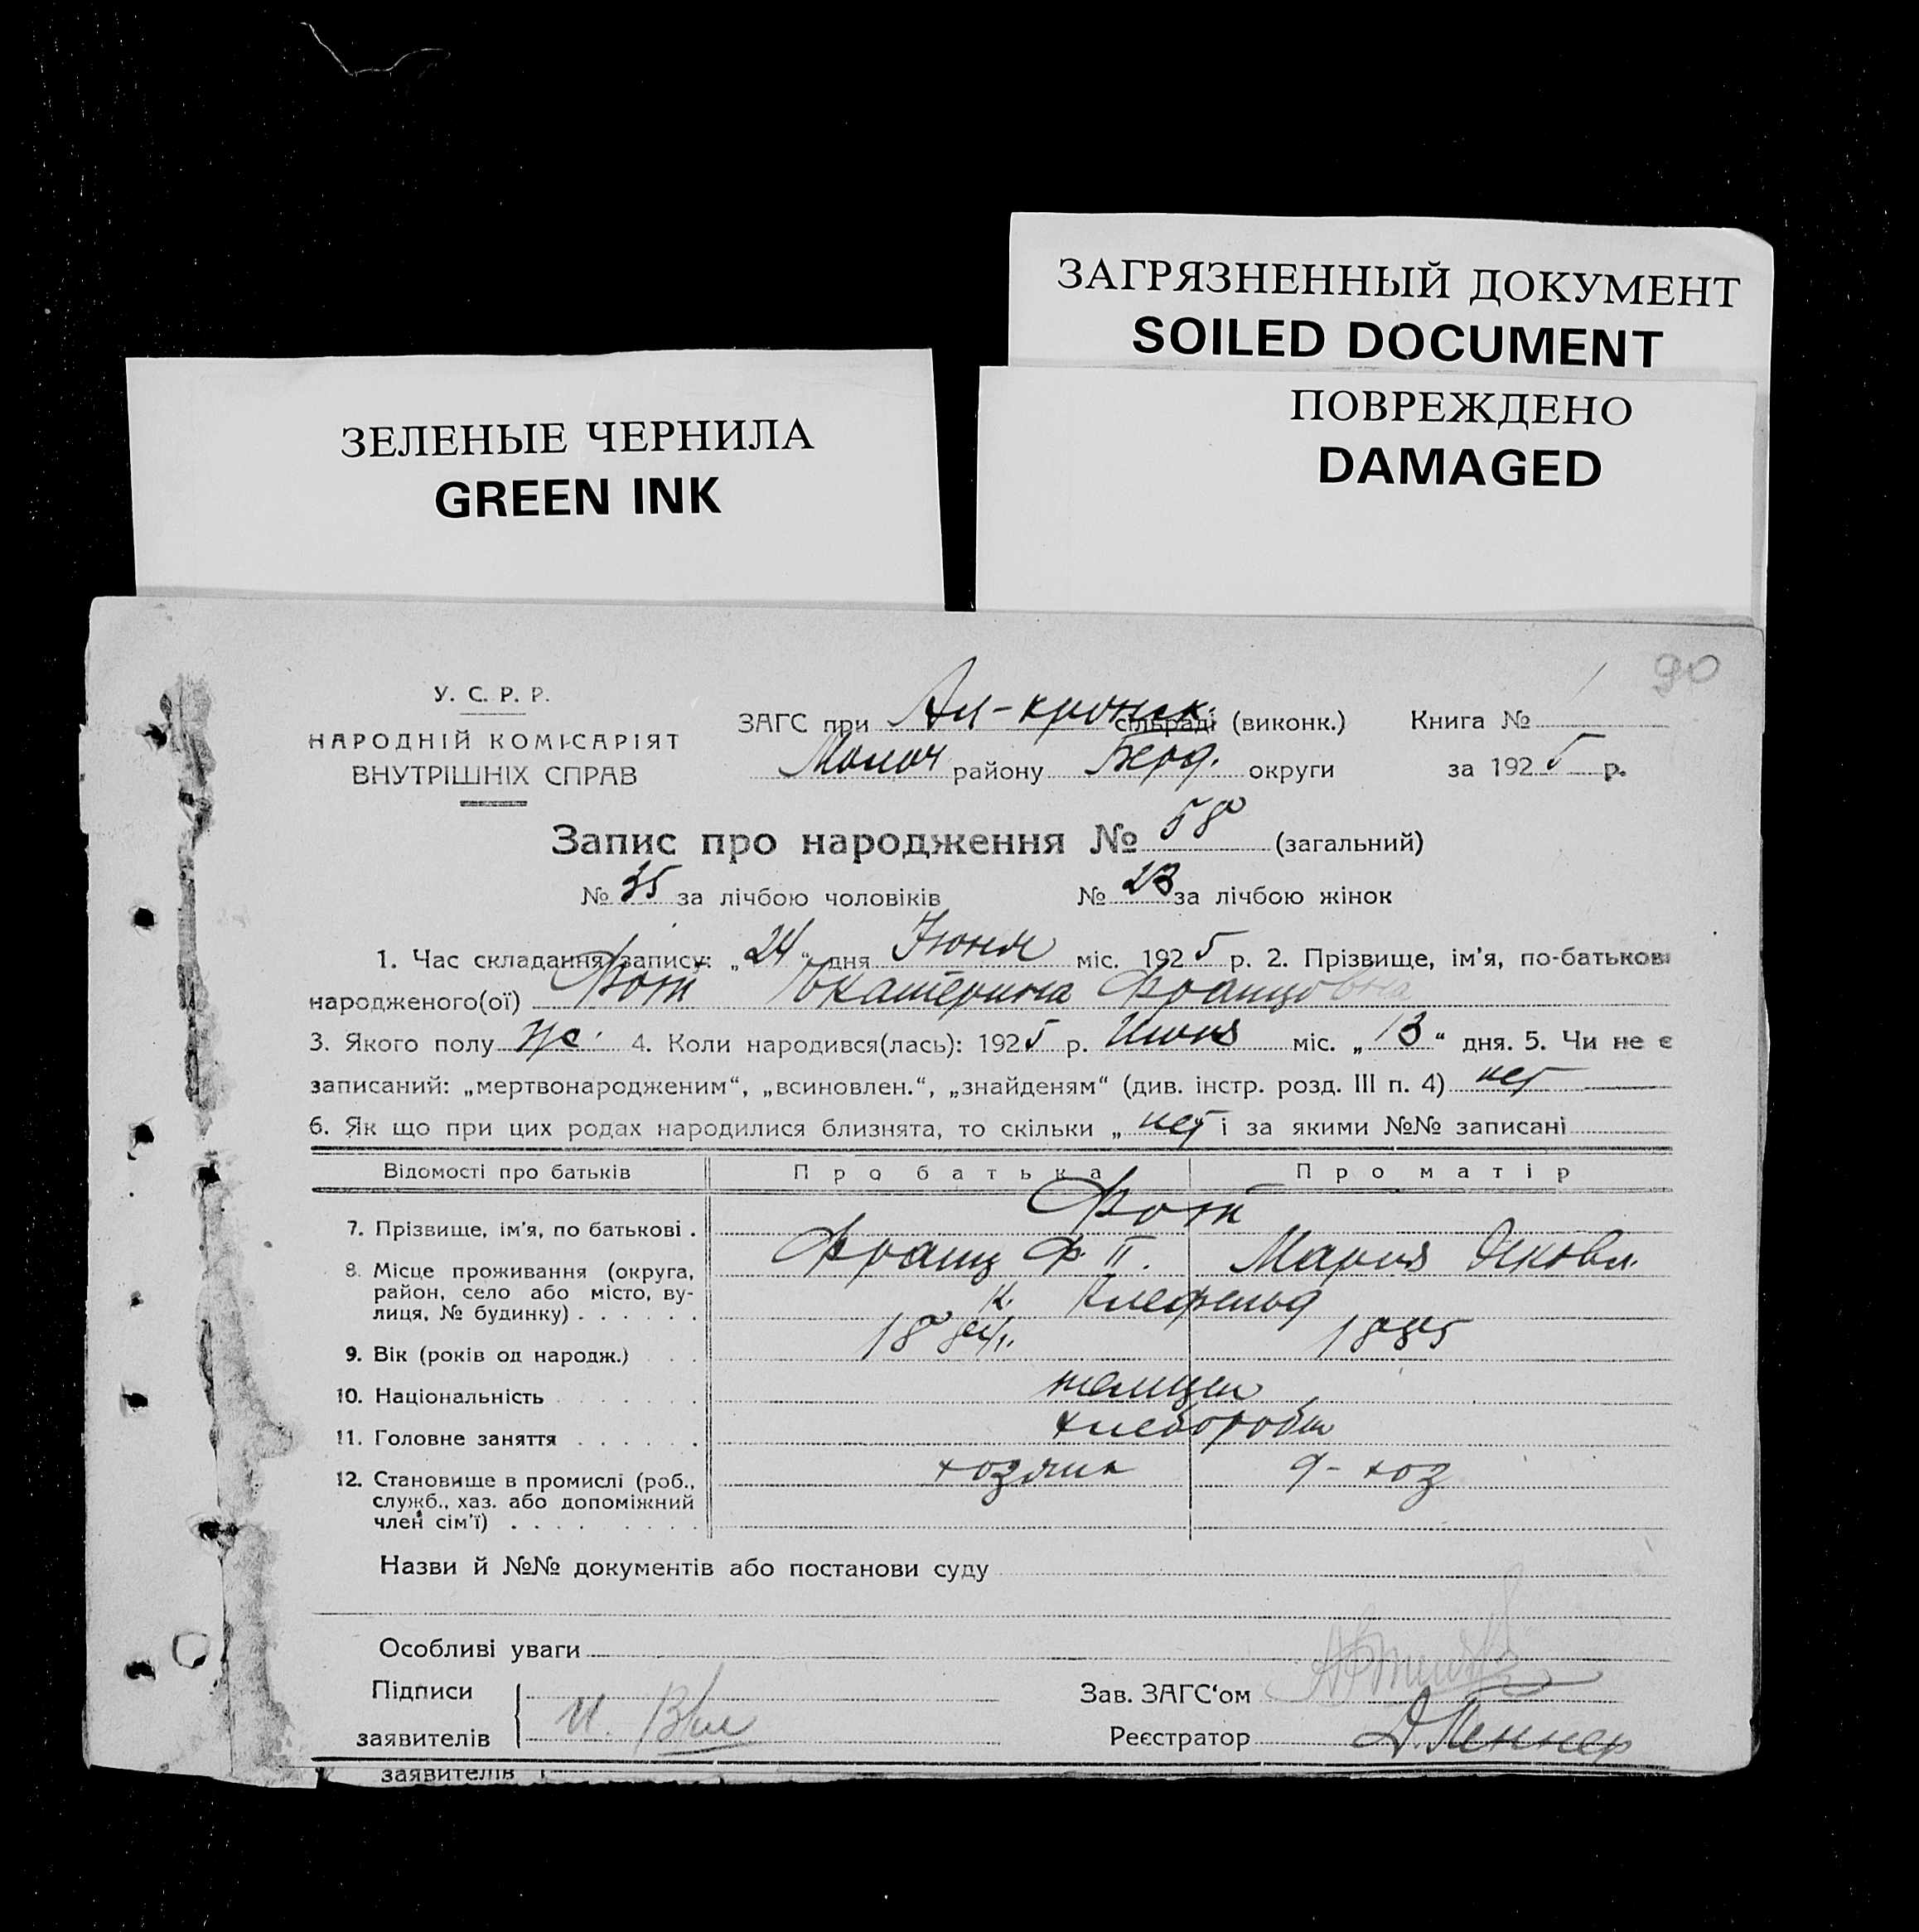 ЗАГРЯЗНЕННЫЙ ДОКУМЕНТ
SOILED DOCUMENT
ПОВРЕЖДЕНО
DAMAGED
ЗЕЛЕНЫЕ ЧЕРНИЛА
GREEN INK
90
У. С. Р. Р.
НАРОДНІЙ КОМІСАРІЯТ
ВНУТРІШНІХ СПРАВ
ЗАГС при Ал-кронск. сільраді (виконк.) Книга № 1
Молоч району Берд. округи за 1925 р.
Запис про народження № 58 (загальний)
№ 35 за лічбою чоловіків № 23 за лічбою жінок
1. Час складання запису: „24“ дня Июня міс. 1925 р. 2. Прізвище, ім'я, по-батькові
народженого(ої) Фот Екатерина Францовна
3. Якого полу ж. 4. Коли народився(лась): 1925 р. Июня міс. „13“ дня. 5. Чи не є
записаний: „мертвонародженим“, „всиновлен.“, „знайденям“ (див. інстр. розд. III п. 4) нет
6. Як що при цих родах народилися близнята, то скільки „нет і за якими №№ записані
Відомості про батьків Про батька Про матір
Фот
7. Прізвище, ім'я, по батькові . Франц Ф. II. Мария Яковл.
8. Місце проживання (округа, район, село або місто, вулиця, № будинку) . . . . . . к. Клефельд
9. Вік (років од народж.) . . . 1885
10. Національність . . . . . . . немцы
11. Головне заняття . . . . . . хлеборобы
12. Становище в промислі (роб., служб., хаз. або допоміжний член сім'ї) . . . . . . . . . хозяин д-хоз
Назви й №№ документів або постанови суду
Особливі уваги
Підписи
Зав. ЗАГС‘ом
заявителів И.
Реєстратор Д. Пеннер
заявителів